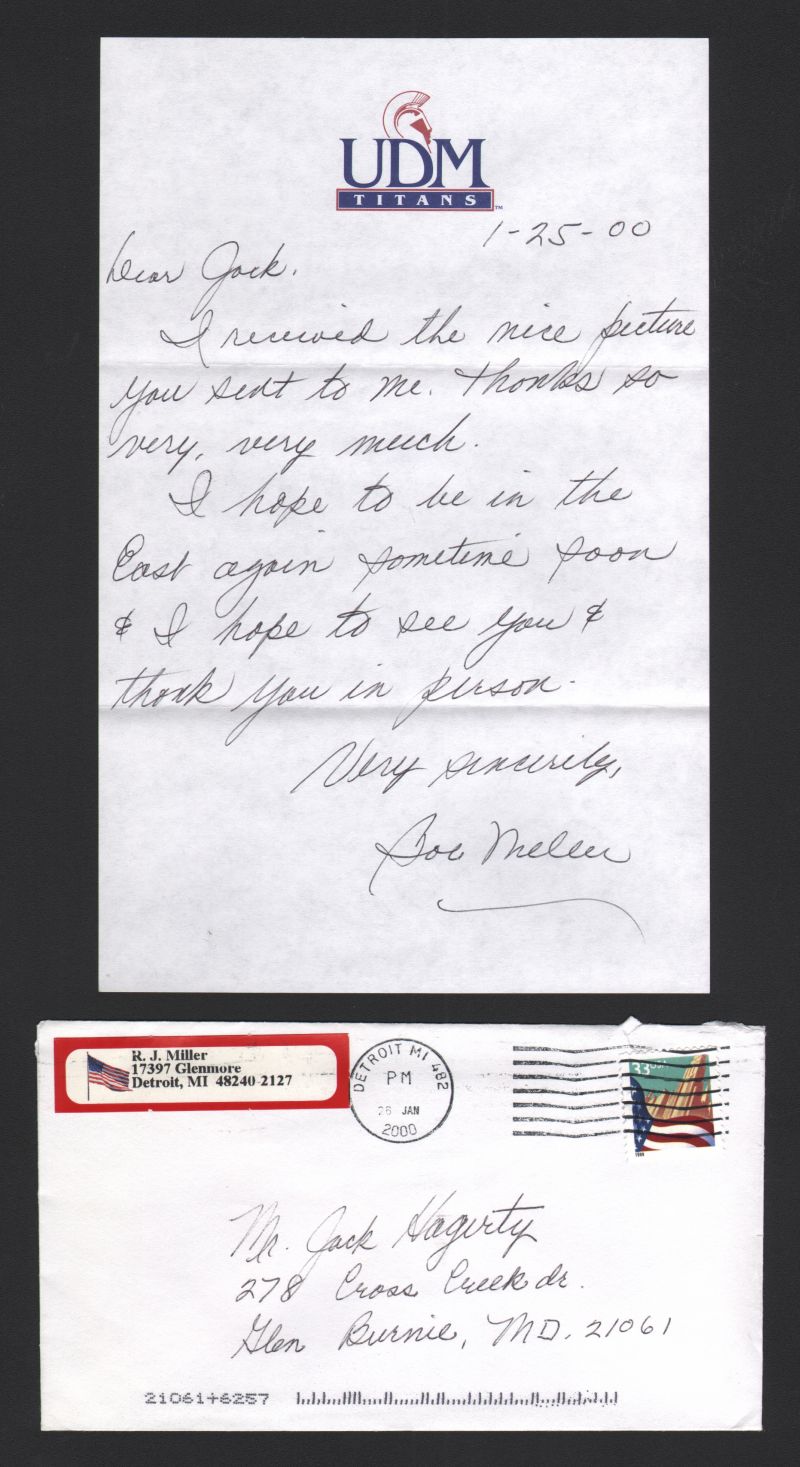 UDM
TITANS™
1-25-00
Dear Jack.
I received the nice picture
you sent to me. Thanks so
very, very much.
I hope to be in the
East again sometime soon
& I hope to see you &
thank you in person.
Very sincerely,
Bob Miller
R. J. Miller
17397 Glenmore
Detroit, MI 48240-2127
DETROIT MI 482
PM
26 JAN
2000
33 USA
1999
Mr. Jack Hagerty
278 Cross Creek dr.
Glen Burnie, MD. 21061
21061+6257